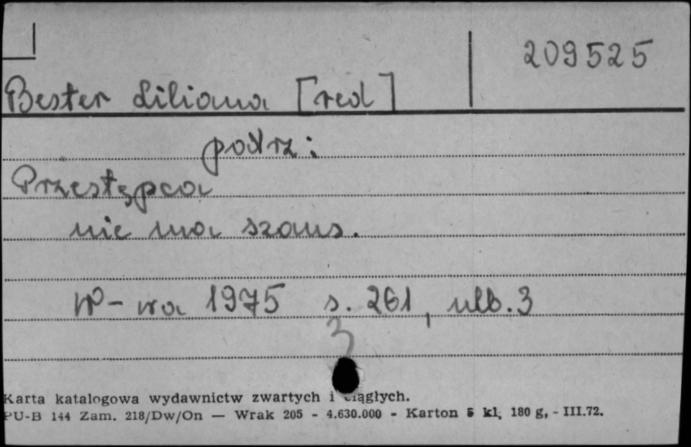 209525
Bester Liliana [red]
patrz:
Przestępca
nie ma szans.
W-wa 1975 s. 261, nlb. 3
3
Karta katalogowa wydawnictw zwartych i ciągłych.
PU-B 144 Zam. 218/Dw/On — Wrak 205 - 4.630.000 - Karton 5 kl. 180 g, - III.72.